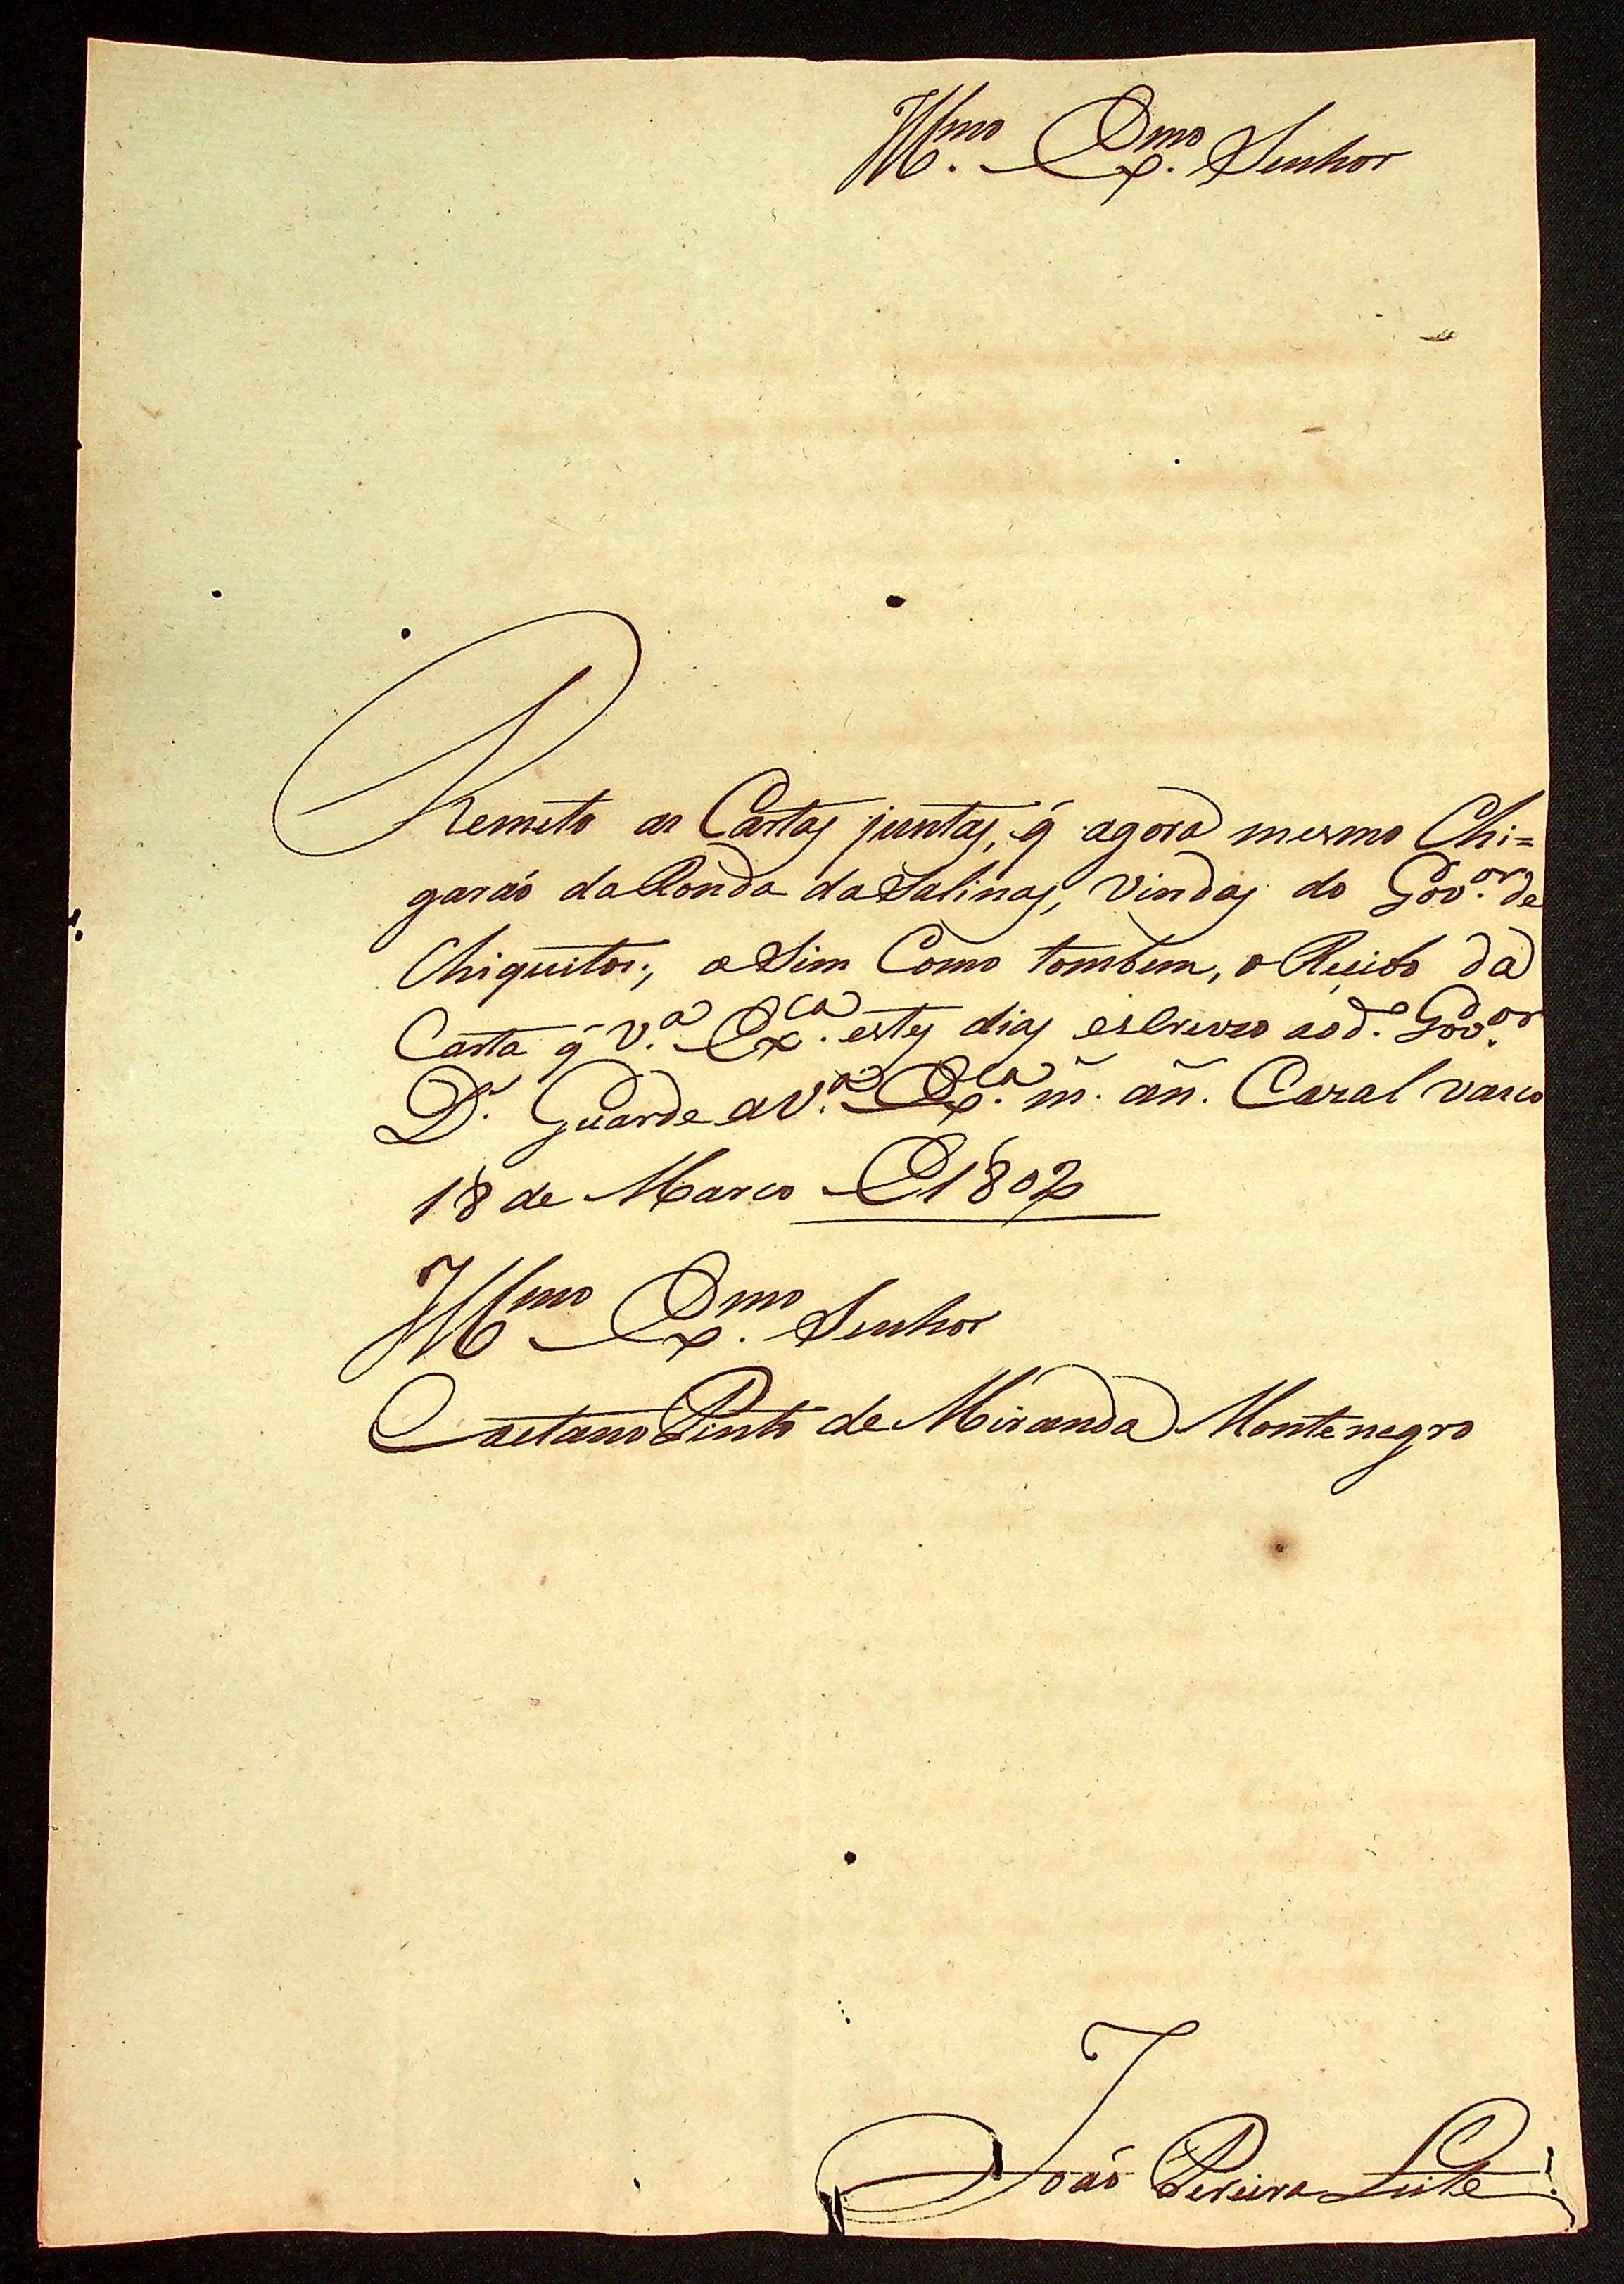 Illmo. Exmo. Senhor
Remeto as Cartas juntas, q̃ agora mesmo Chi=
garaõ da Ronda da Salinas, vindas do Govor. de
Chiquitos; asim Como tombem, o Reçibo da
Carta q̃ V.ª Exca. estes dias escreveo ao d.º Govor.
D.s Guarde a V.ª Exca. m̃. añ. Cazal vasco
18 de Marco E 1802
Illmo Exmo. Senhor
Caetano Pinto de Miranda Montenegro
Joaõ Pereira Leite